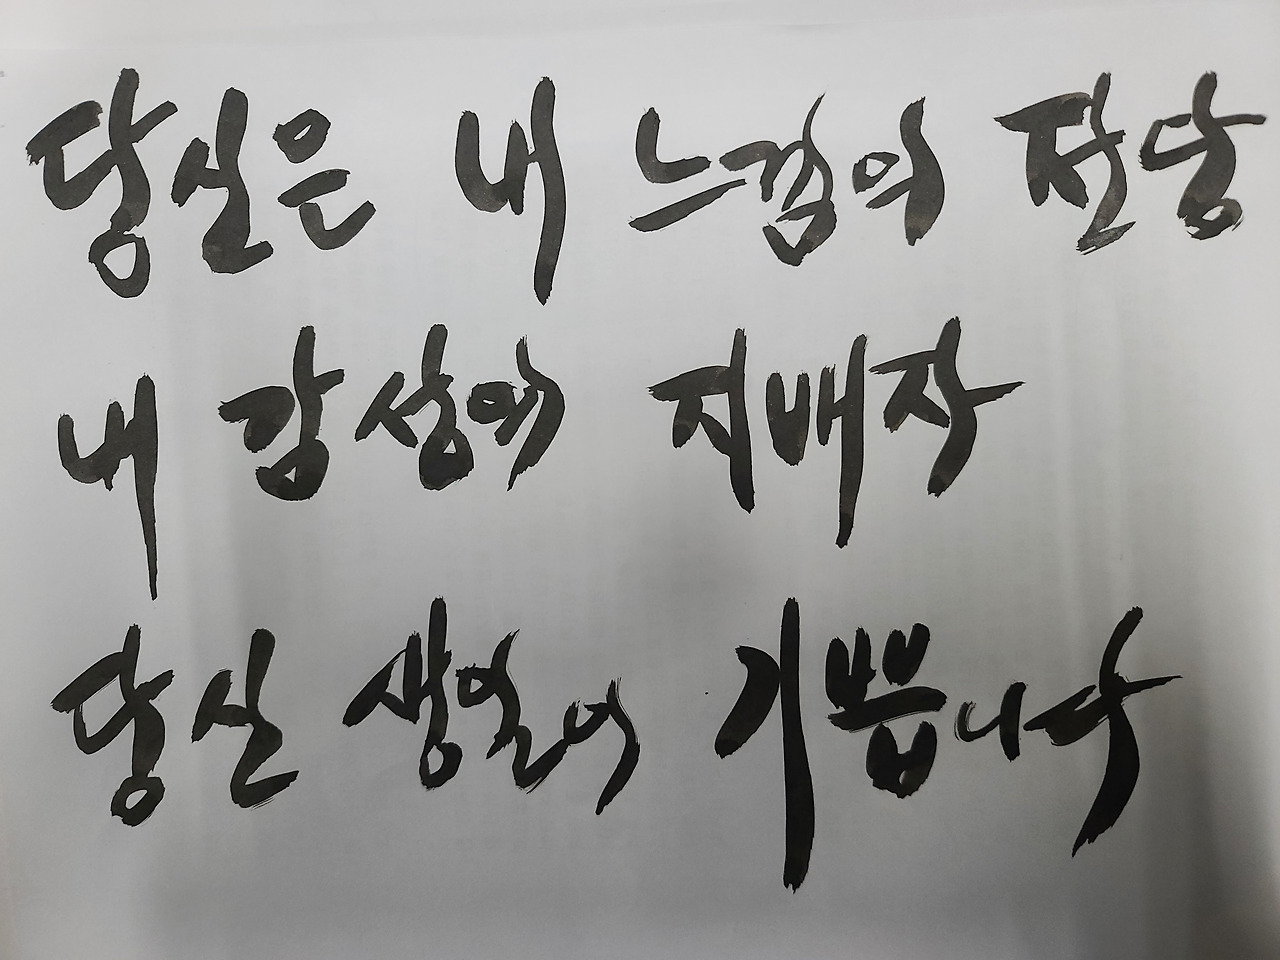 당신은 내 느낌의 전당
내 감성의 지배자
당신 생일이 기쁩니다